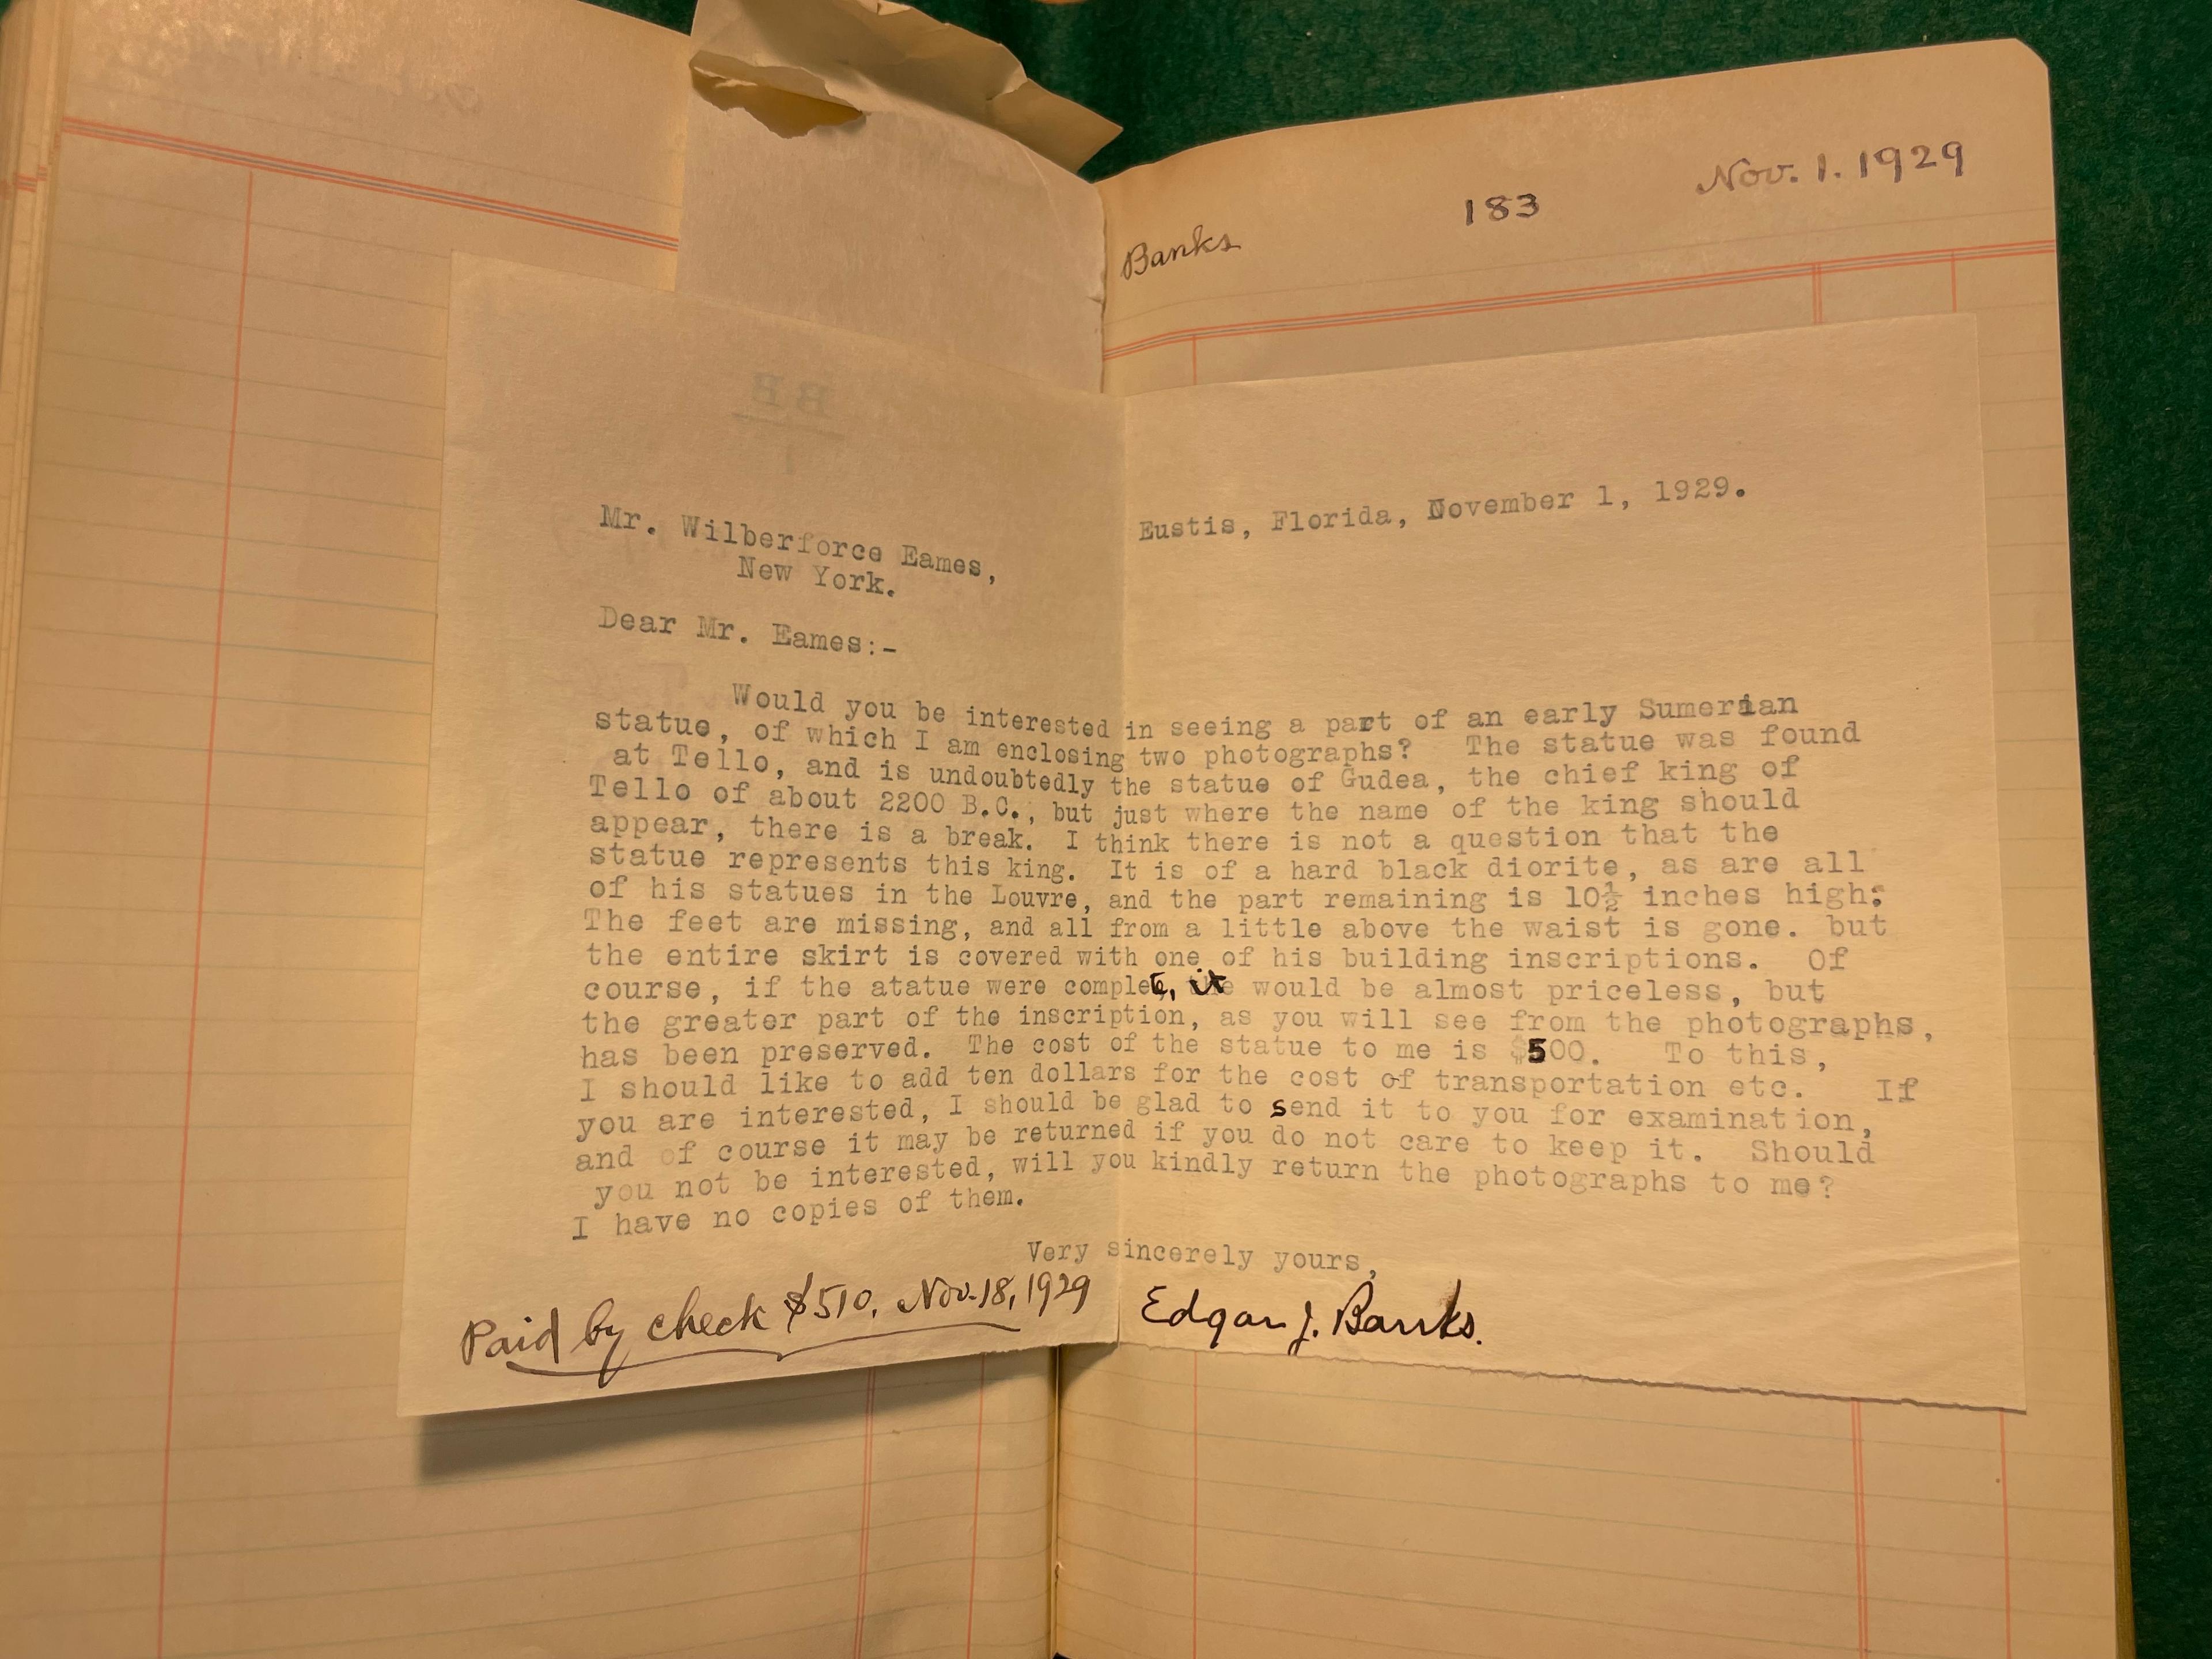 Nov. 1. 1929
183
Banks
Eustis, Florida, November 1, 1929.
Mr. Wilberforce Eames,
New York.
Dear Mr. Eames:-
Would you be interested in seeing a part of an early Sumerian
statue, of which I am enclosing two photographs? The statue was found
at Tello, and is undoubtedly the statue of Gudea, the chief king of
Tello of about 2200 B.C., but just where the name of the king should
appear, there is a break. I think there is not a question that the
statue represents this king. It is of a hard black diorite, as are all
of his statues in the Louvre, and the part remaining is 10½ inches high:
The feet are missing, and all from a little above the waist is gone. but
the entire skirt is covered with one of his building inscriptions. Of
course, if the atatue were complet, it would be almost priceless, but
the greater part of the inscription, as you will see from the photographs,
has been preserved. The cost of the statue to me is $500. To this,
I should like to add ten dollars for the cost of transportation etc. If
you are interested, I should be glad to send it to you for examination,
and of course it may be returned if you do not care to keep it. Should
you not be interested, will you kindly return the photographs to me?
I have no copies of them.
Very sincerely yours,
Edgar J. Banks.
Paid by check $510. Nov. 18, 1929